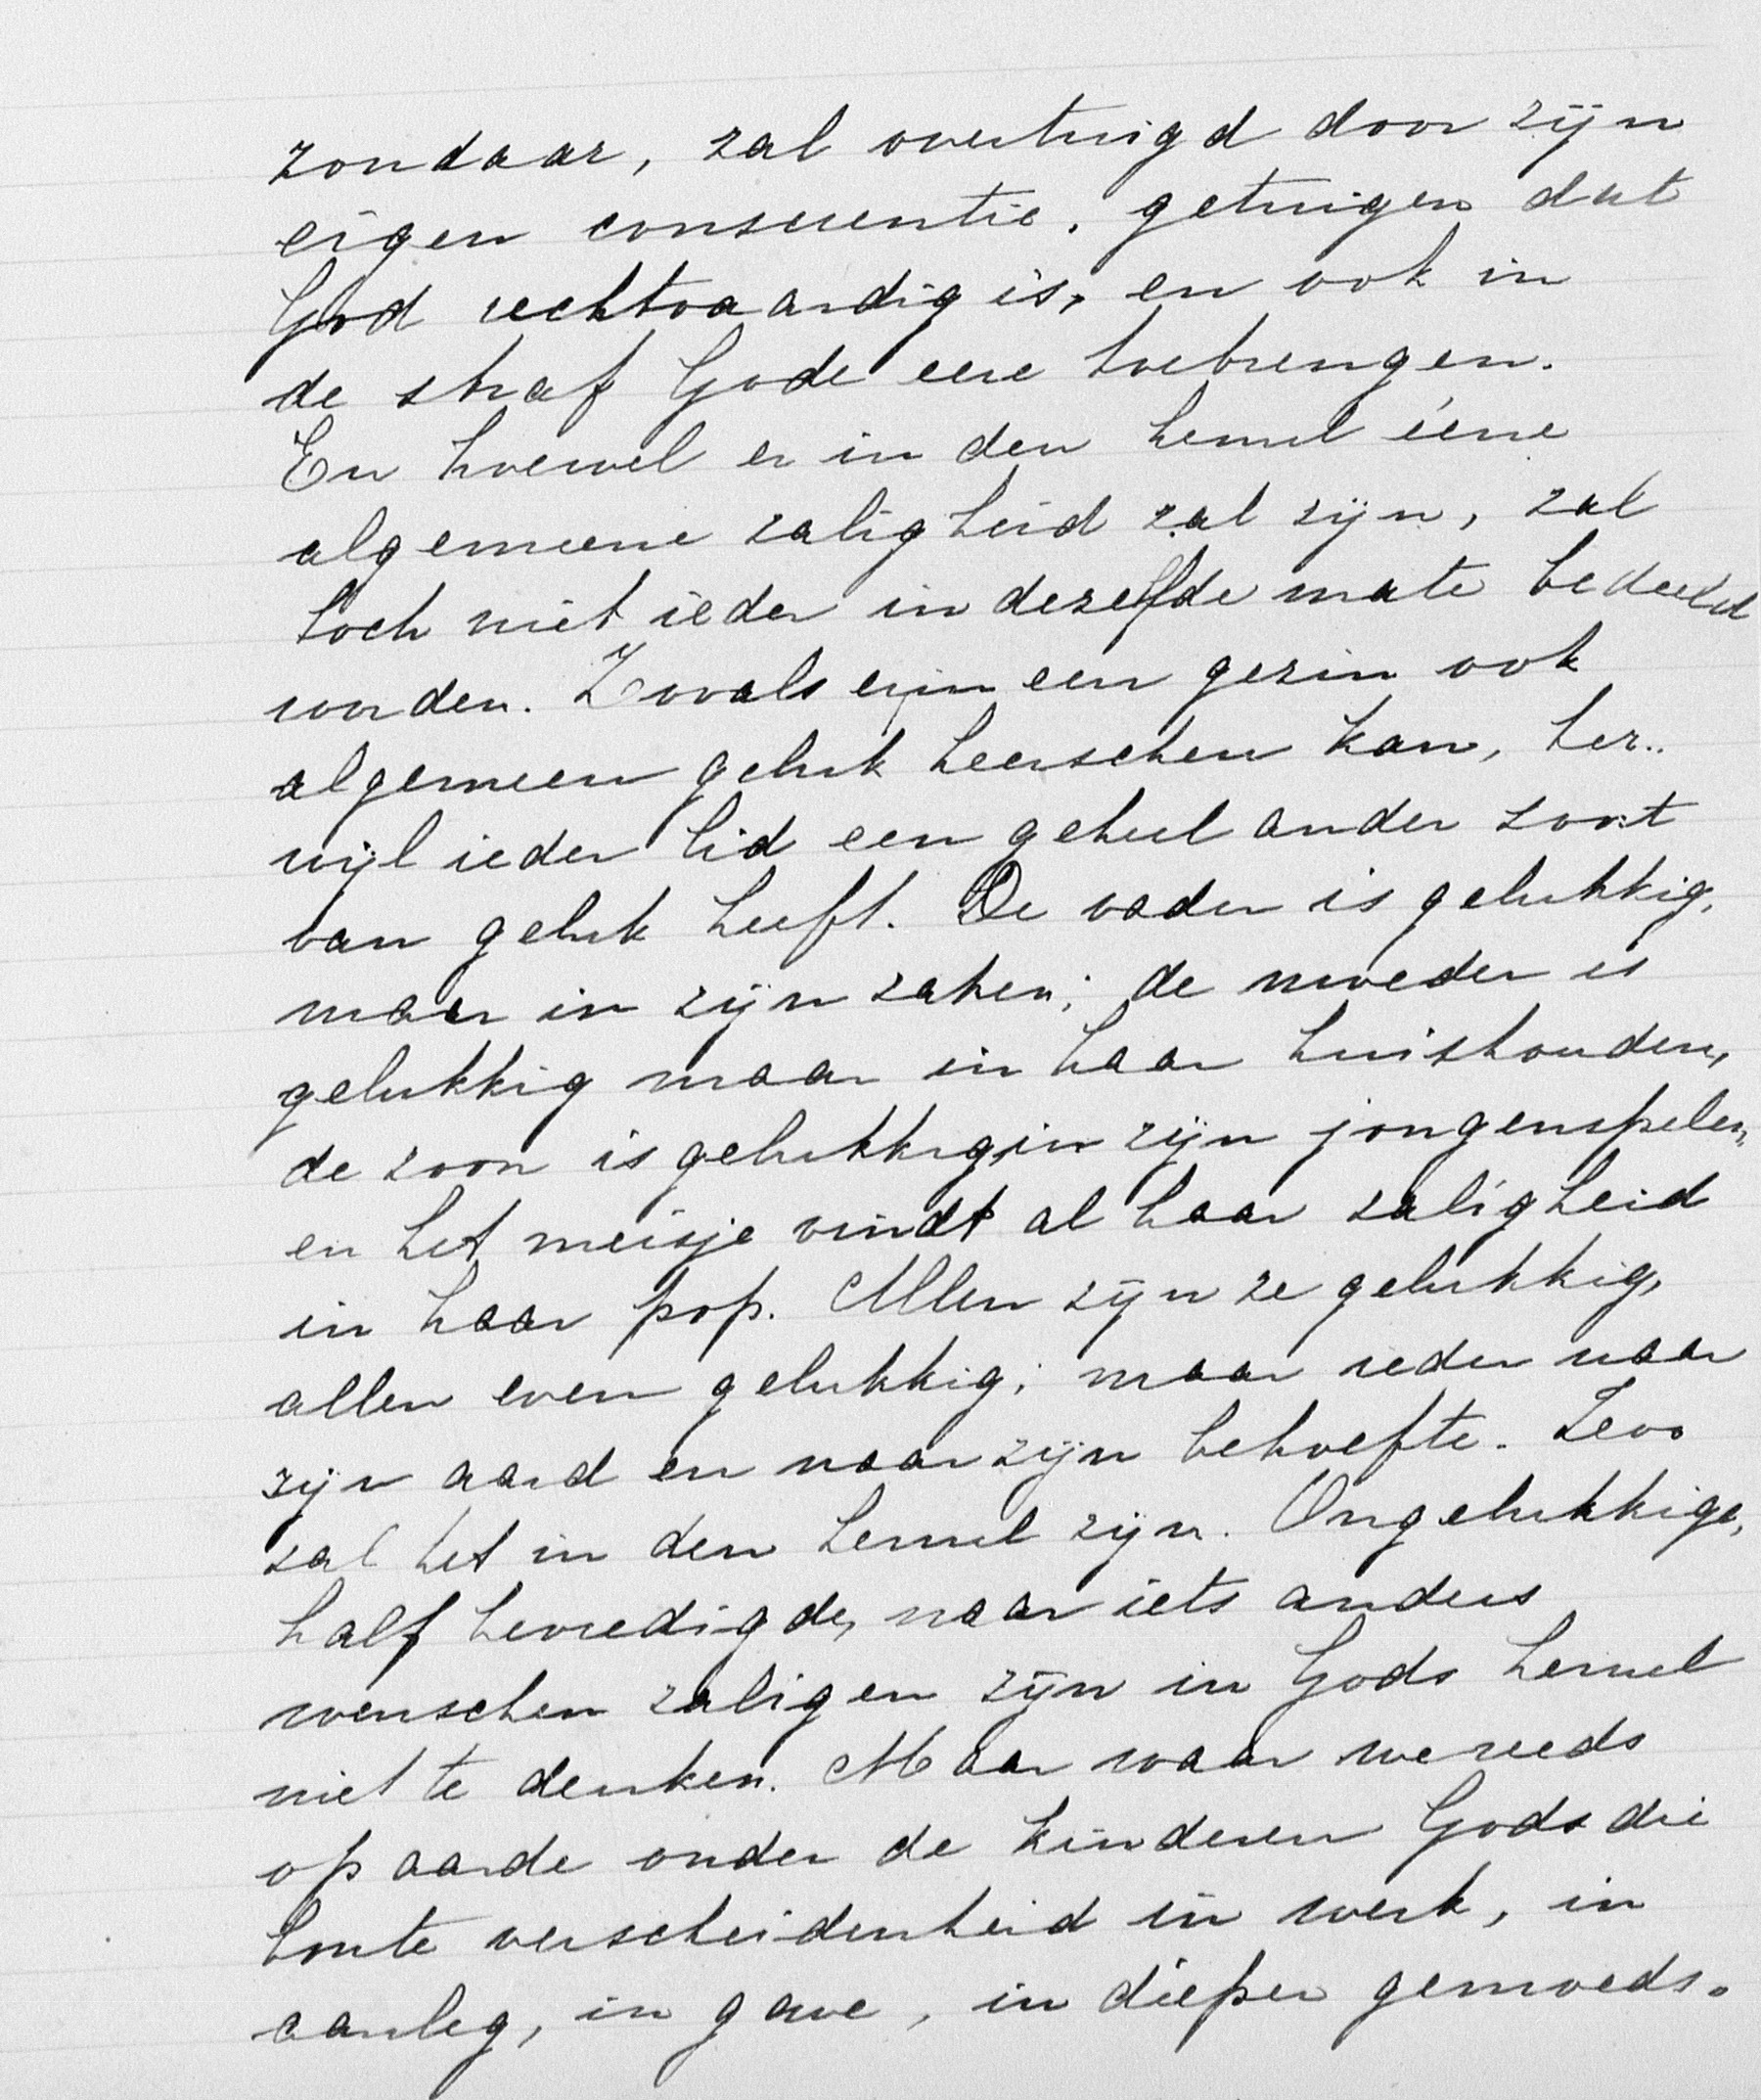 zondaar, zal overtuigd door zijn
eigen consciëntie, getuigen dat
God rechtvaardig is, en ook in
de straf Gode eere toebrengen.
En hoewel er in den hemel ééne
algemeene zaligheid zal zijn, zal
toch niet ieder in dezelfde mate bedeeld
worden. Zooals er in een gezin ook
algemeen geluk heerschen kan, ter..
wijl ieder lid een geheel ander soort
van geluk heeft. De vader is gelukkig,
maar in zijn zaken; de moeder is
gelukkig maar in haar huishouden,
de zoon is gelukkig, in zijn jongenspelen,
en het meisje vindt al haar zaligheid
in haar pop. Allen zijn ze gelukkig,
allen even gelukkig; maar ieder naar
zijn aard en naar zijn behoefte. Zoo
zal het in den hemel zijn. Ongelukkige,
half bevredigde, naar iets anders
wenschen zaligen zijn in Gods hemel
niet te denken. Maar waar we reeds
op aarde onder de kinderen Gods die
bonte verscheidenheid in werk, in
aanleg, in gave, in dieper gemoeds-